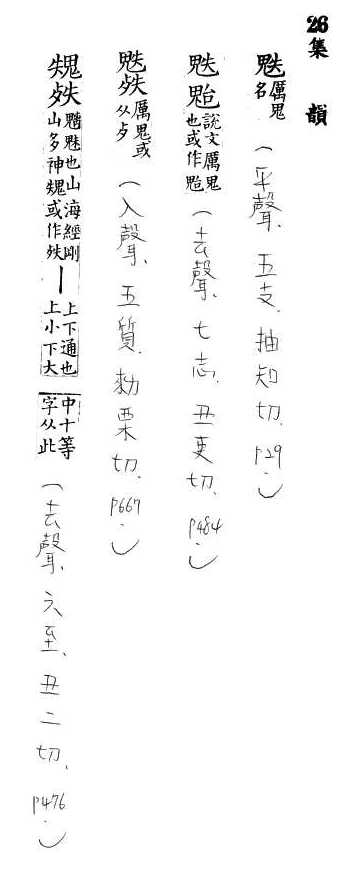 26集韻
鬽厲鬼名(平聲、五支、抽知切、p29.)
鬽鬾說文厲鬼也或作鬾(去聲、七志、丑吏切、p484.)
厲鬼或从歹(入聲、五質、勑栗切、p667.)
魑魅也山海經剛山多神或作上下通也上小下大中十等字从此(去聲、六至、丑二切、p476.)